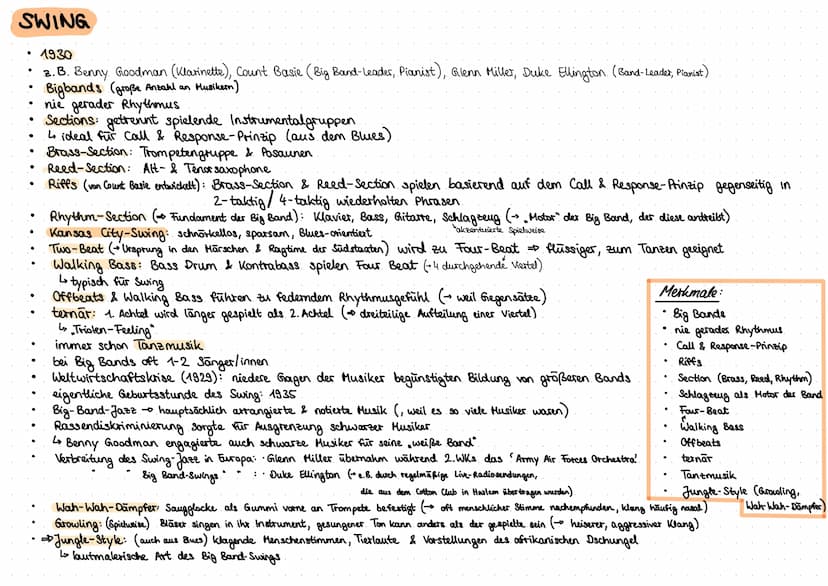 SWING
• 1930
• z.B. Benny Goodman (Klarinette), Count Basie (Big Band-Leader, Pianist), Glenn Miller, Duke Ellington (Band-Leader, Pianist)
• Bigbands (große Anzahl an Musikern)
• nie gerader Rhythmus
• Sections: getrennt spielende Instrumentalgruppen
• ↳ ideal für Call & Response-Prinzip (aus dem Blues)
• Brass-Section: Trompetengruppe & Posaunen
• Reed-Section: Alt- & Tenorsaxophone
• Riffs (von Count Basie entwickelt): Brass-Section & Reed-Section spielen basierend auf dem Call & Response-Prinzip gegenseitig in
2-taktig/ 4-taktig wiederholten Phrasen
• Rhythm-Section (→ Fundament der Big Band): Klavier, Bass, Gitarre, Schlagzeug (→ „Motor" der Big Band, der diese antreibt)
• Kansas City-Swing: schnörkellos, sparsam, Blues-orientiert
↳akzentuierte Spielweise
• Two-Beat (→ Ursprung in den Märschen & Ragtime der Südstaaten) wird zu Four-Beat ⇒ flüssiger, zum Tanzen geeignet
• Walking Bass: Bass Drum & Kontrabass spielen Four Beat (→ 4 durchgehende Viertel)
↳ typisch für Swing
• Offbeats & Walking Bass führen zu federndem Rhythmusgefühl (→ weil Gegensätze)
• ternär: 1. Achtel wird länger gespielt als 2. Achtel (→ dreiteilige Aufteilung einer Viertel)
↳ „Triolen-Feeling"
• immer schon Tanzmusik
• bei Big Bands oft 1-2 Sänger/innen
• Weltwirtschaftskrise (1929): niedere Gagen der Musiker begünstigten Bildung von größeren Bands
• eigentliche Geburtsstunde des Swing: 1935
• Big-Band-Jazz → hauptsächlich arrangierte & notierte Musik (, weil es so viele Musiker waren)
• Rassendiskriminierung sorgte für Ausgrenzung schwarzer Musiker
• ↳ Benny Goodman engagierte auch schwarze Musiker für seine „weiße Band"
• Verbreitung des Swing-Jazz in Europa: · Glenn Miller übernahm während 2.WKs das 'Army Air Forces Orchestra'
" " Big Band-Swings " " : · Duke Ellington (→ z.B. durch regelmäßige Live-Radiosendungen,
die aus dem Cotton Club in Harlem übertragen wurden)
• Wah-Wah-Dämpfer: Saugglocke als Gummi vorne an Trompete befestigt (→ oft menschlicher Stimme nachempfunden, klang häufig nasal)
• Growling: (Spielweise) Bläser singen in ihr Instrument, gesungener Ton kann anders als der gespielte sein (→ heiserer, aggressiver Klang)
• ⇒ Jungle-Style: (auch aus Blues) klagende Menschenstimmen, Tierlaute & Vorstellungen des afrikanischen Dschungel
↳ lautmalerische Art des Big Band-Swings
Merkmale:
• Big Bands
• nie gerader Rhythmus
• Call & Response-Prinzip
• Riffs
• Section (Brass, Reed, Rhythm)
• Schlagzeug als Motor der Band
• Four-Beat
• Walking Bass
• Offbeats
• ternär
• Tanzmusik
• Jungle-Style (Growling,
Wah-Wah-Dämpfer)